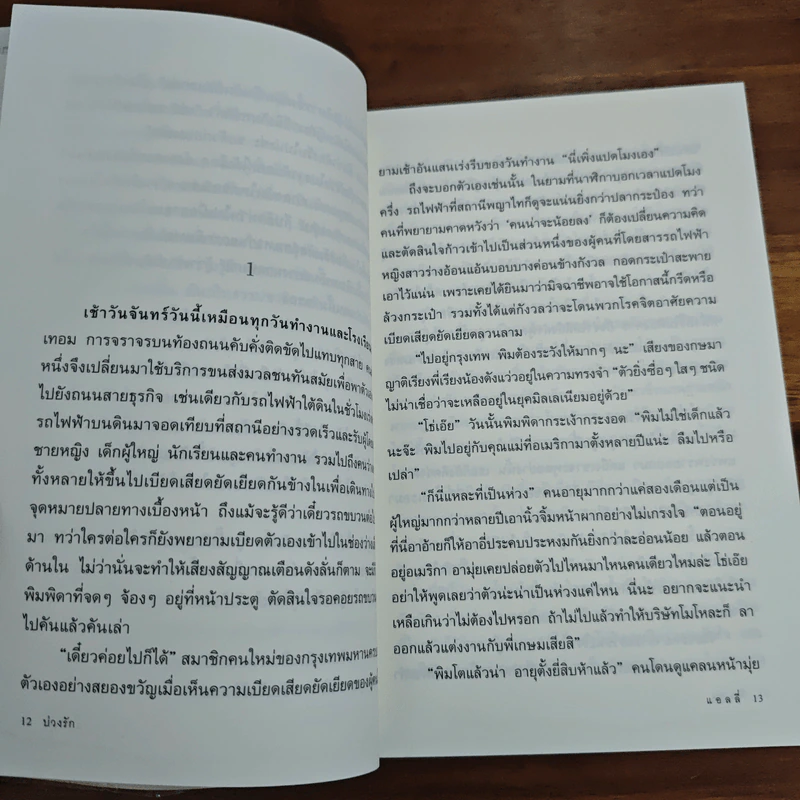 1
เช้าวันจันทร์วันนี้เหมือนทุกวันทำงานและโรงเรียน
เทอม การจราจรบนท้องถนนคับคั่งติดขัดไปแทบทุกสาย
หนึ่งจึงเปลี่ยนมาใช้บริการขนส่งมวลชนทันสมัยเพื่อพาตัว
ไปยังถนนสายธุรกิจ เช่นเดียวกับรถไฟฟ้าใต้ดินในชั่วโมง
รถไฟฟ้าบนดินมาจอดเทียบที่สถานีอย่างรวดเร็วและรับ
ชายหญิง เด็กผู้ใหญ่ นักเรียนและคนทำงาน รวมไปถึงคน
ทั้งหลายให้ขึ้นไปเบียดเสียดยัดเยียดกันข้างในเพื่อเดินทาง
จุดหมายปลายทางเบื้องหน้า ถึงแม้จะรู้ดีว่าเดี๋ยวรถขบวน
มา ทว่าใครต่อใครก็ยังพยายามเบียดตัวเองเข้าไปในช่อง
ด้านใน ไม่ว่านั่นจะทำให้เสียงสัญญาณเตือนดังลั่นก็ตาม
พิมพิดาที่จดๆ จ้องๆ อยู่ที่หน้าประตู ตัดสินใจรอคอยรถ
ไปคันแล้วคันเล่า
“เดี๋ยวค่อยไปก็ได้” สมาชิกคนใหม่ของกรุงเทพมหานคร
ตัวเองอย่างสยองขวัญเมื่อเห็นความเบียดเสียดยัดเยียดของ
12 บ่วงรัก
ยามเช้าอันแสนเร่งรีบของวันทำงาน “นี่เพิ่งแปดโมงเอง”
ถึงจะบอกตัวเองเช่นนั้น ในยามที่นาฬิกาบอกเวลาแปดโมง
ครึ่ง รถไฟฟ้าที่สถานีพญาไทก็ดูจะแน่นยิ่งกว่าปลากระป๋อง ทว่า
คนที่พยายามคาดหวังว่า ‘คนน่าจะน้อยลง’ ก็ต้องเปลี่ยนความคิด
และตัดสินใจก้าวเข้าไปเป็นส่วนหนึ่งของผู้คนที่โดยสารรถไฟฟ้า
หญิงสาวร่างอ้อนแอ้นบอบบางค่อนข้างกังวล กอดกระเป๋าสะพาย
เอาไว้แน่น เพราะเคยได้ยินมาว่ามิจฉาชีพอาจใช้โอกาสนี้กรีดหรือ
ล้วงกระเป๋า รวมทั้งได้แต่กังวลว่าจะโดนพวกโรคจิตอาศัยความ
เบียดเสียดยัดเยียดลวนลาม
“ไปอยู่กรุงเทพ พิมต้องระวังให้มากๆ นะ” เสียงของกษมา
ญาติเรียงพี่เรียงน้องดังแว่วอยู่ในความทรงจำ “ตัวยิ่งซื่อๆ ใสๆ ชนิด
ไม่น่าเชื่อว่าจะเหลืออยู่ในยุคมิลเลเนียมอยู่ด้วย”
“โซ่เอ๊ย” วันนั้นพิมพิดากระเง้ากระงอด “พิมไม่ใช่เด็กแล้ว
นะจ๊ะ พิมไปอยู่กับคุณแม่ที่อเมริกามาตั้งหลายปีแน่ะ ลืมไปหรือ
เปล่า”
“ก็นี่แหละที่เป็นห่วง” คนอายุมากกว่าแค่สองเดือนแต่เป็น
ผู้ใหญ่มากกว่าหลายปีเอานิ้วจิ้มหน้าผากอย่างไม่เกรงใจ “ตอนอยู่
ที่นี่อาอ้ายก็ให้อาอี่ประคบประหงมกันยิ่งกว่าละอ่อนน้อย แล้วตอน
อยู่อเมริกา อามุ่ยเคยปล่อยตัวไปไหนมาไหนคนเดียวไหมล่ะ โซ่เอ๊ย
อย่าให้พูดเลยว่าตัวน่ะน่าเป็นห่วงแค่ไหน นี่นะ อยากจะแนะนำ
เหลือเกินว่าไม่ต้องไปหรอก ถ้าไม่ไปแล้วทำให้บริษัทโมโหละก็ ลา
ออกแล้วแต่งงานกับพี่เกษมเสียสิ”
“พิมโตแล้วน่า อายุตั้งยี่สิบห้าแล้ว” คนโดนดูแคลนหน้ามุ่ย
แอลลี่ 13